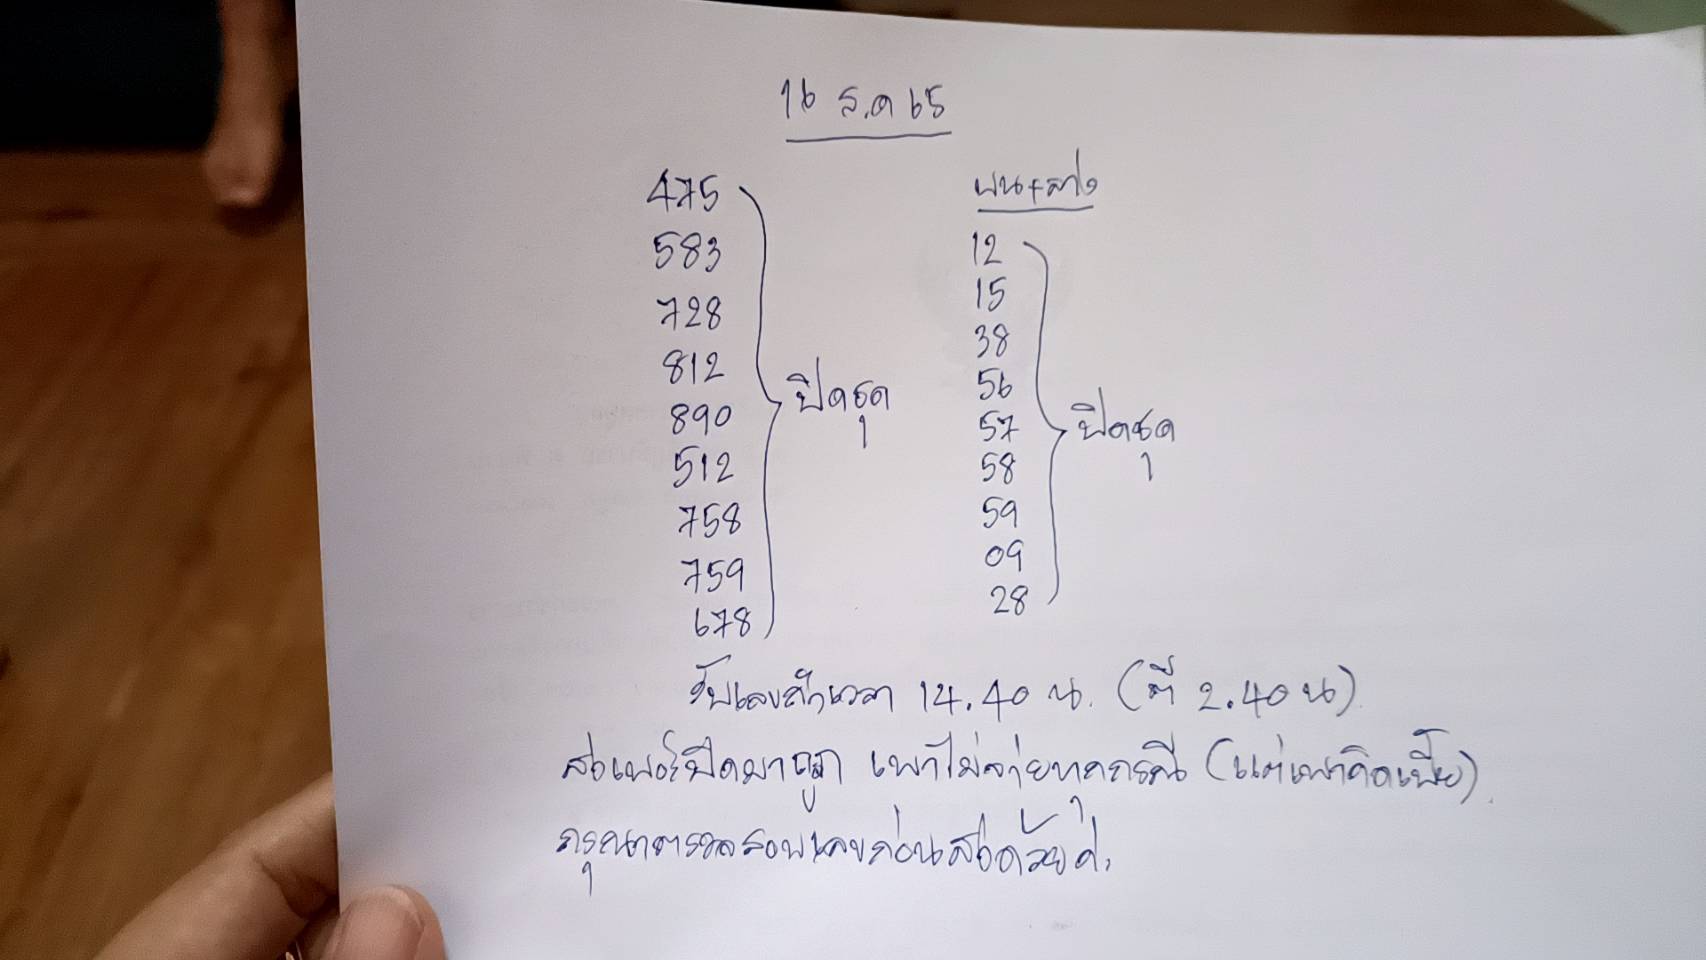 16 ส.ค 65
475
583
728
812
890
512
758
759
678
ปิดชุด
บน+ล่าง
12
15
38
56
57
58
59
09
28
ปิดชุด
รับเลขถึงเวลา 14.40 น. (ตี 2.40 น)
ส่งเพราะปิดมาถูก เขาไม่จ่ายทุกกรณี (แต่เขาคิดเบี้ย)
กรุณาตรวจสอบเลขก่อนส่งด้วยค่ะ